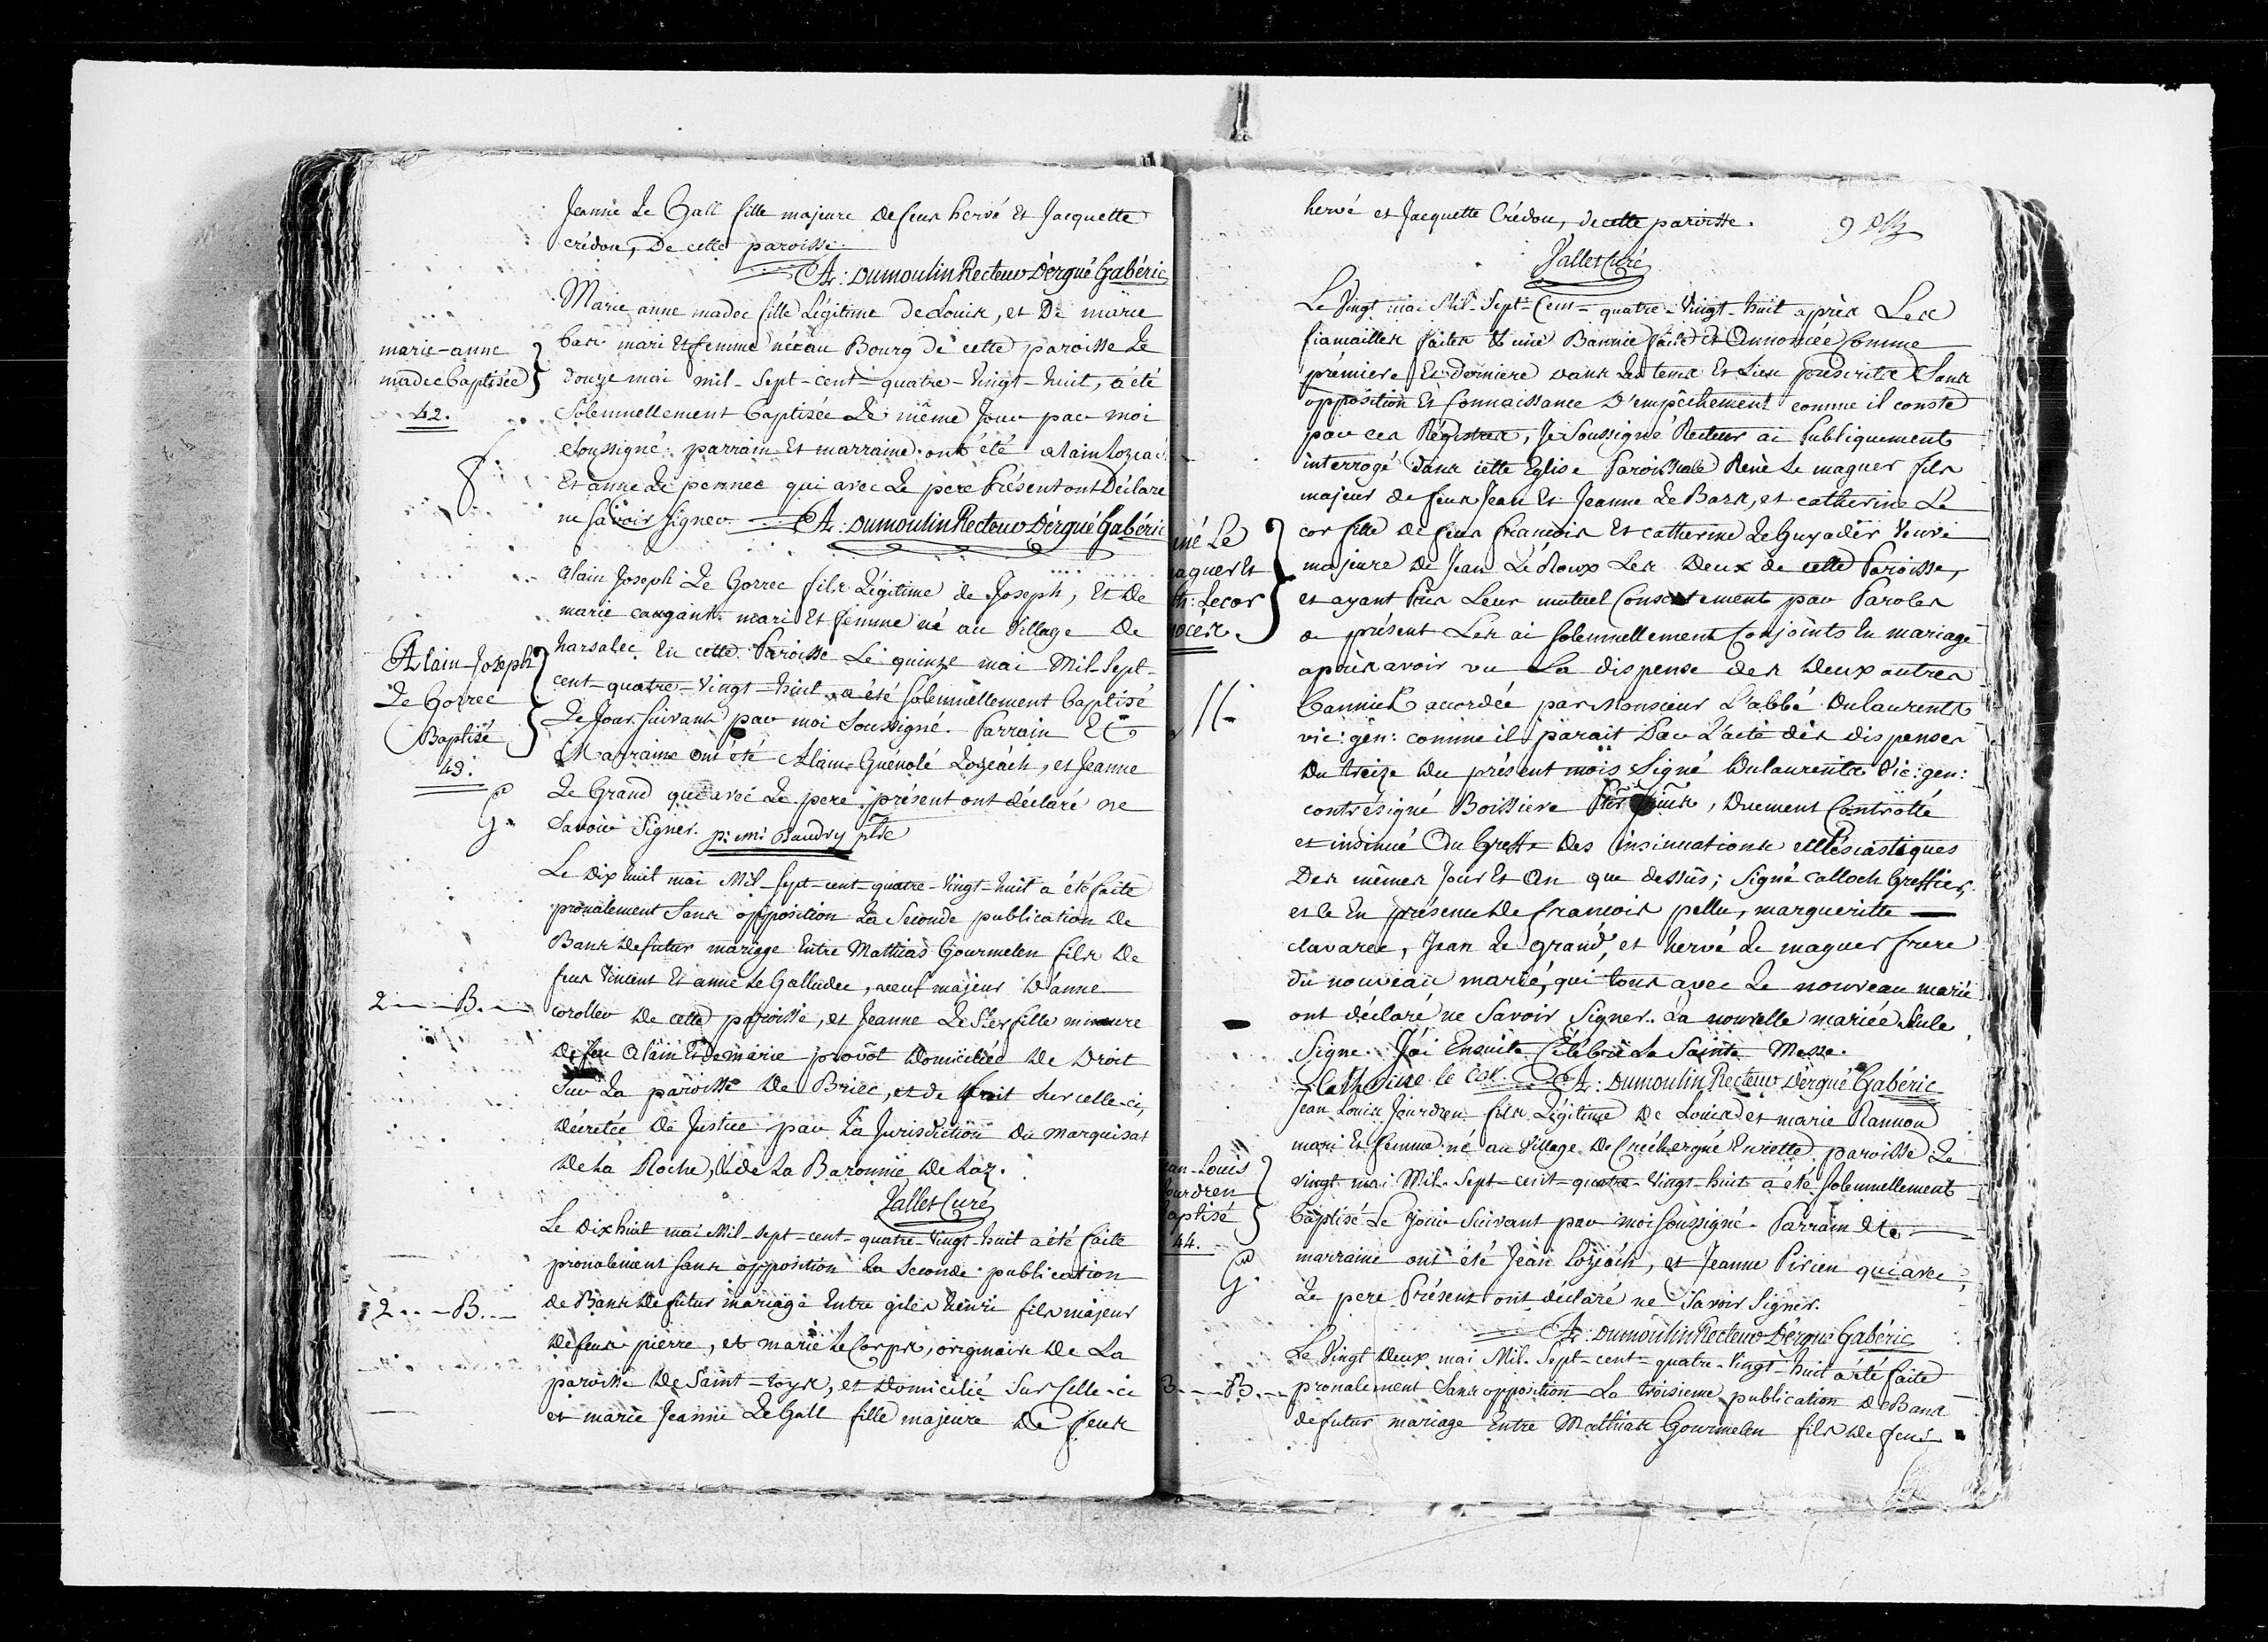 Jeanne Le Gall fille majeure de feus hervé Et Jacquette
crédou, De cette paroisse.
A: Dumoulin Recteur D'ergué Gabéric
Marie anne madec fille Légitime de Louis, et De marie
bars mari Et femme née au Bourg de cette paroisse Le
marie-anne
madec Baptisée
42.
douze mai mil-Sept-cent-quatre-Vingt-huit, a été
Solemnellement baptisée Le même Jour par moi
Soussigné. parrain Et marraine ont été alain Lozeac
Et anne Le pennec qui avec Le pere Présent ont Déclaré
ne Savoir Signer. A: Dumoulin Recteur D'ergué Gabéric
Alain Joseph Le Gorrec fils Légitime de Joseph, Et De
marie caugant mari Et femme né au Village De
Alain-Joseph
Le Gorrec
Baptisé
43.
G.
En cette Paroisse Le quinze mai Mil-Sept-
cent-quatre-Vingt-huit a été Solemnellement baptisé
Le Jour Suivant par moi Soussigné. Parrain Et
Marraine ont été Alain-Guénolé Lozeach, et Jeanne
Le Grand qui avec Le pere présent ont déclaré ne
Savoir Signer. p: m: Baudry ptre
Le Dix huit mai Mil-Sept-cent-quatre-Vingt-huit a été faite
pronalement Sans opposition La Seconde publication De
Bans de futur mariage Entre Mathias Gourmelen fils De
feus Vincent Et anne Le Galludec, veuf majeur D'anne
2----B.
coroller De cette paroisse, et Jeanne Le Ster fille mineure
De feu Alain Et de marie provôt Domiciliée De Droit
Sur La paroisse De Briec, et de fait Sur celle-ci,
décrétée De Justice par La Jurisdiction Du Marquisat
De La Roche, & de La Baronnie De Laz.
Jallet Curé
Le Dix huit mai Mil-Sept-cent-quatre-Vingt-huit a été faite
pronalement Sans opposition La Seconde publication
2...-B.
de Bans De futur mariage Entre giles henri fils majeur
De feus pierre, et marie Le Corps, originaire De La
paroisse De Saint-, et Domicilié Sur Celle-ci
et marie Jeanne Le Gall fille majeure De feus
hervé et Jacquette Crédou, de cette paroisse.
9
Jallet Curé
Le Vingt mai Mil-Sept-Cent-quatre-Vingt-huit après Les
fiancailles faites Et une Bannie faite Et Annoncée Comme
première Et dernière dans Les tems Et Lieu prescrits Sans
opposition Et Connaissance D'empêchement comme il conste
par ces Régistres, Je Soussigné Recteur ai Publiquement
interrogé dans cette Eglise Paroissiale René Le maguer fils
majeur de feus Jean Et Jeanne Le Bars, et catherine Le
né Le
aguer Et
th: Le cor
oces.
cor fille De feus francois Et catherine Le Guyader Veuve
majeure De Jean Le Roux Les Deux de cette Paroisse,
et ayant Pris Leur mutuel Consentement par Paroles
de présent Les ai Solemnellement Conjoints En mariage
après avoir vu La dispense des Deux autres
bannies accordée par Monsieur L'abbé Dulaurents
vic: gén: comme il parait Par L'acte des dispenses
Du treize Du présent mois Signé Dulaurents Vic: gen:
contresigné Boissiere , Duement Contrôllé
et insinué Au Greffe Des insinuations ecclésiastiques
Des mêmes Jour Et An que dessus; Signé Calloch Greffier,
et ce En présence De francois pellu, margueritte
clavarec, Jean Le grand, et hervé Le maguer frere
du nouveau marié, qui tous avec Le nouveau marié
ont déclaré ne Savoir Signer. La nouvelle mariée Seule
Signe. J'ai Ensuite Célébré La Sainte Messe.
Catherine le cor. A: Dumoulin Recteur D'ergué Gabéric
Jean Louis Jourdren fils Légitime De Louis et marie Rannou
mari Et femme né au Village De Créchergué En cette paroisse Le
an-Louis
ourdren
aptisé
44.
G.
vingt mai Mil-Sept-cent-quatre-Vingt-huit a été Solemnellement
baptisé Le Jour Suivant par moi Soussigné. Parrain Et
marraine ont été Jean Lozeach, et Jeanne Pirien qui avec
Le pere Présent ont déclaré ne Savoir Signer.
A: Dumoulin Recteur D'ergué Gabéric
Le Vingt Deux mai Mil-Sept-cent-quatre-Vingt-huit a été faite
3.---B.
pronalement Sans opposition La troisieme publication De Bans
de futur mariage Entre Mathias Gourmelen fils De feus